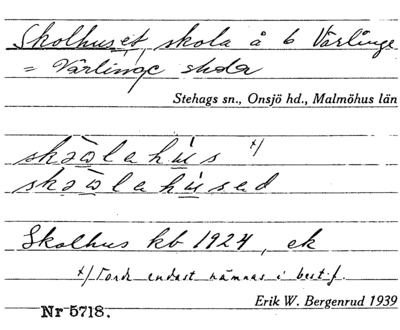 Skolhuset, skola å 6 Värlinge
= Värlinge skola
Stehags sn., Onsjö hd., Malmöhus län
skǝωlahu̇s x/
skǝωlahu̇sǝd
Skolhus kb 1924, ek
x/ Torde endast nämnas i best. f.
Erik W. Bergenrud 1939
Nr 5718.